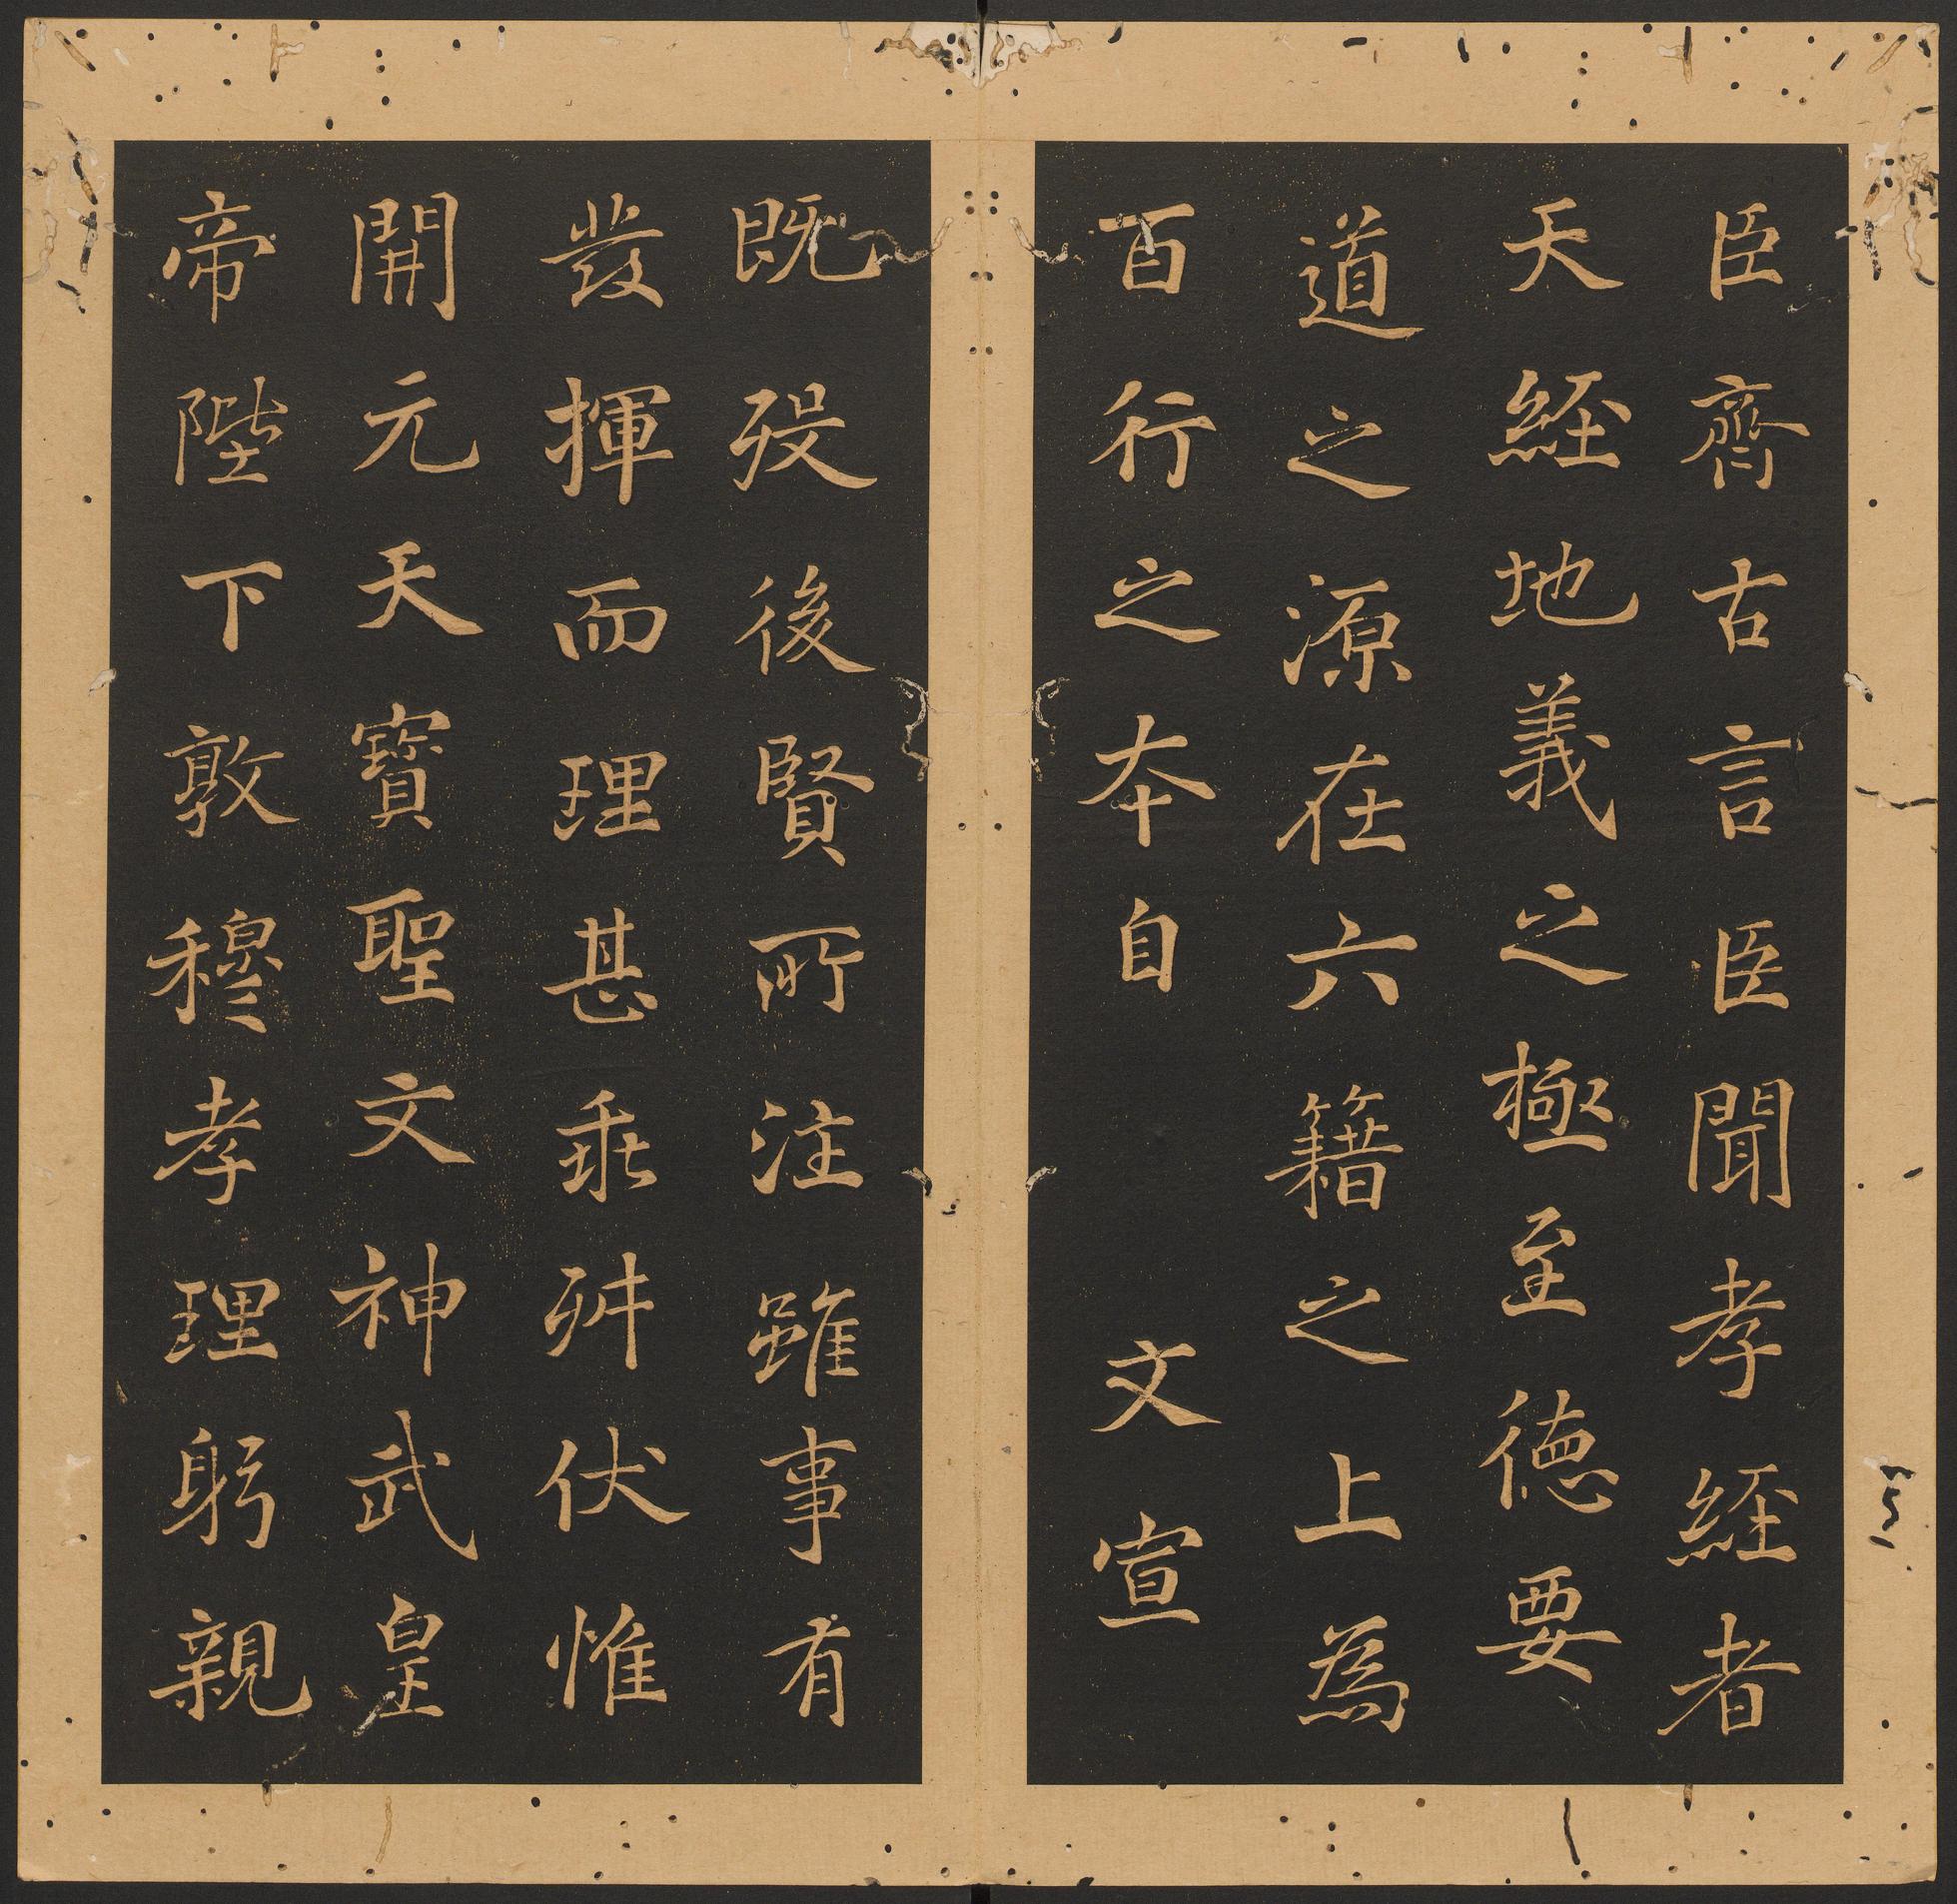 臣齊古言臣聞孝經者
天經地義之極至德要
道之源在六籍之上為
百行之本自　文宣
既歿後賢所注雖事有
發揮而理甚乖舛伏惟
開元天寶聖文神武皇
帝陛下敦穆孝理躬親